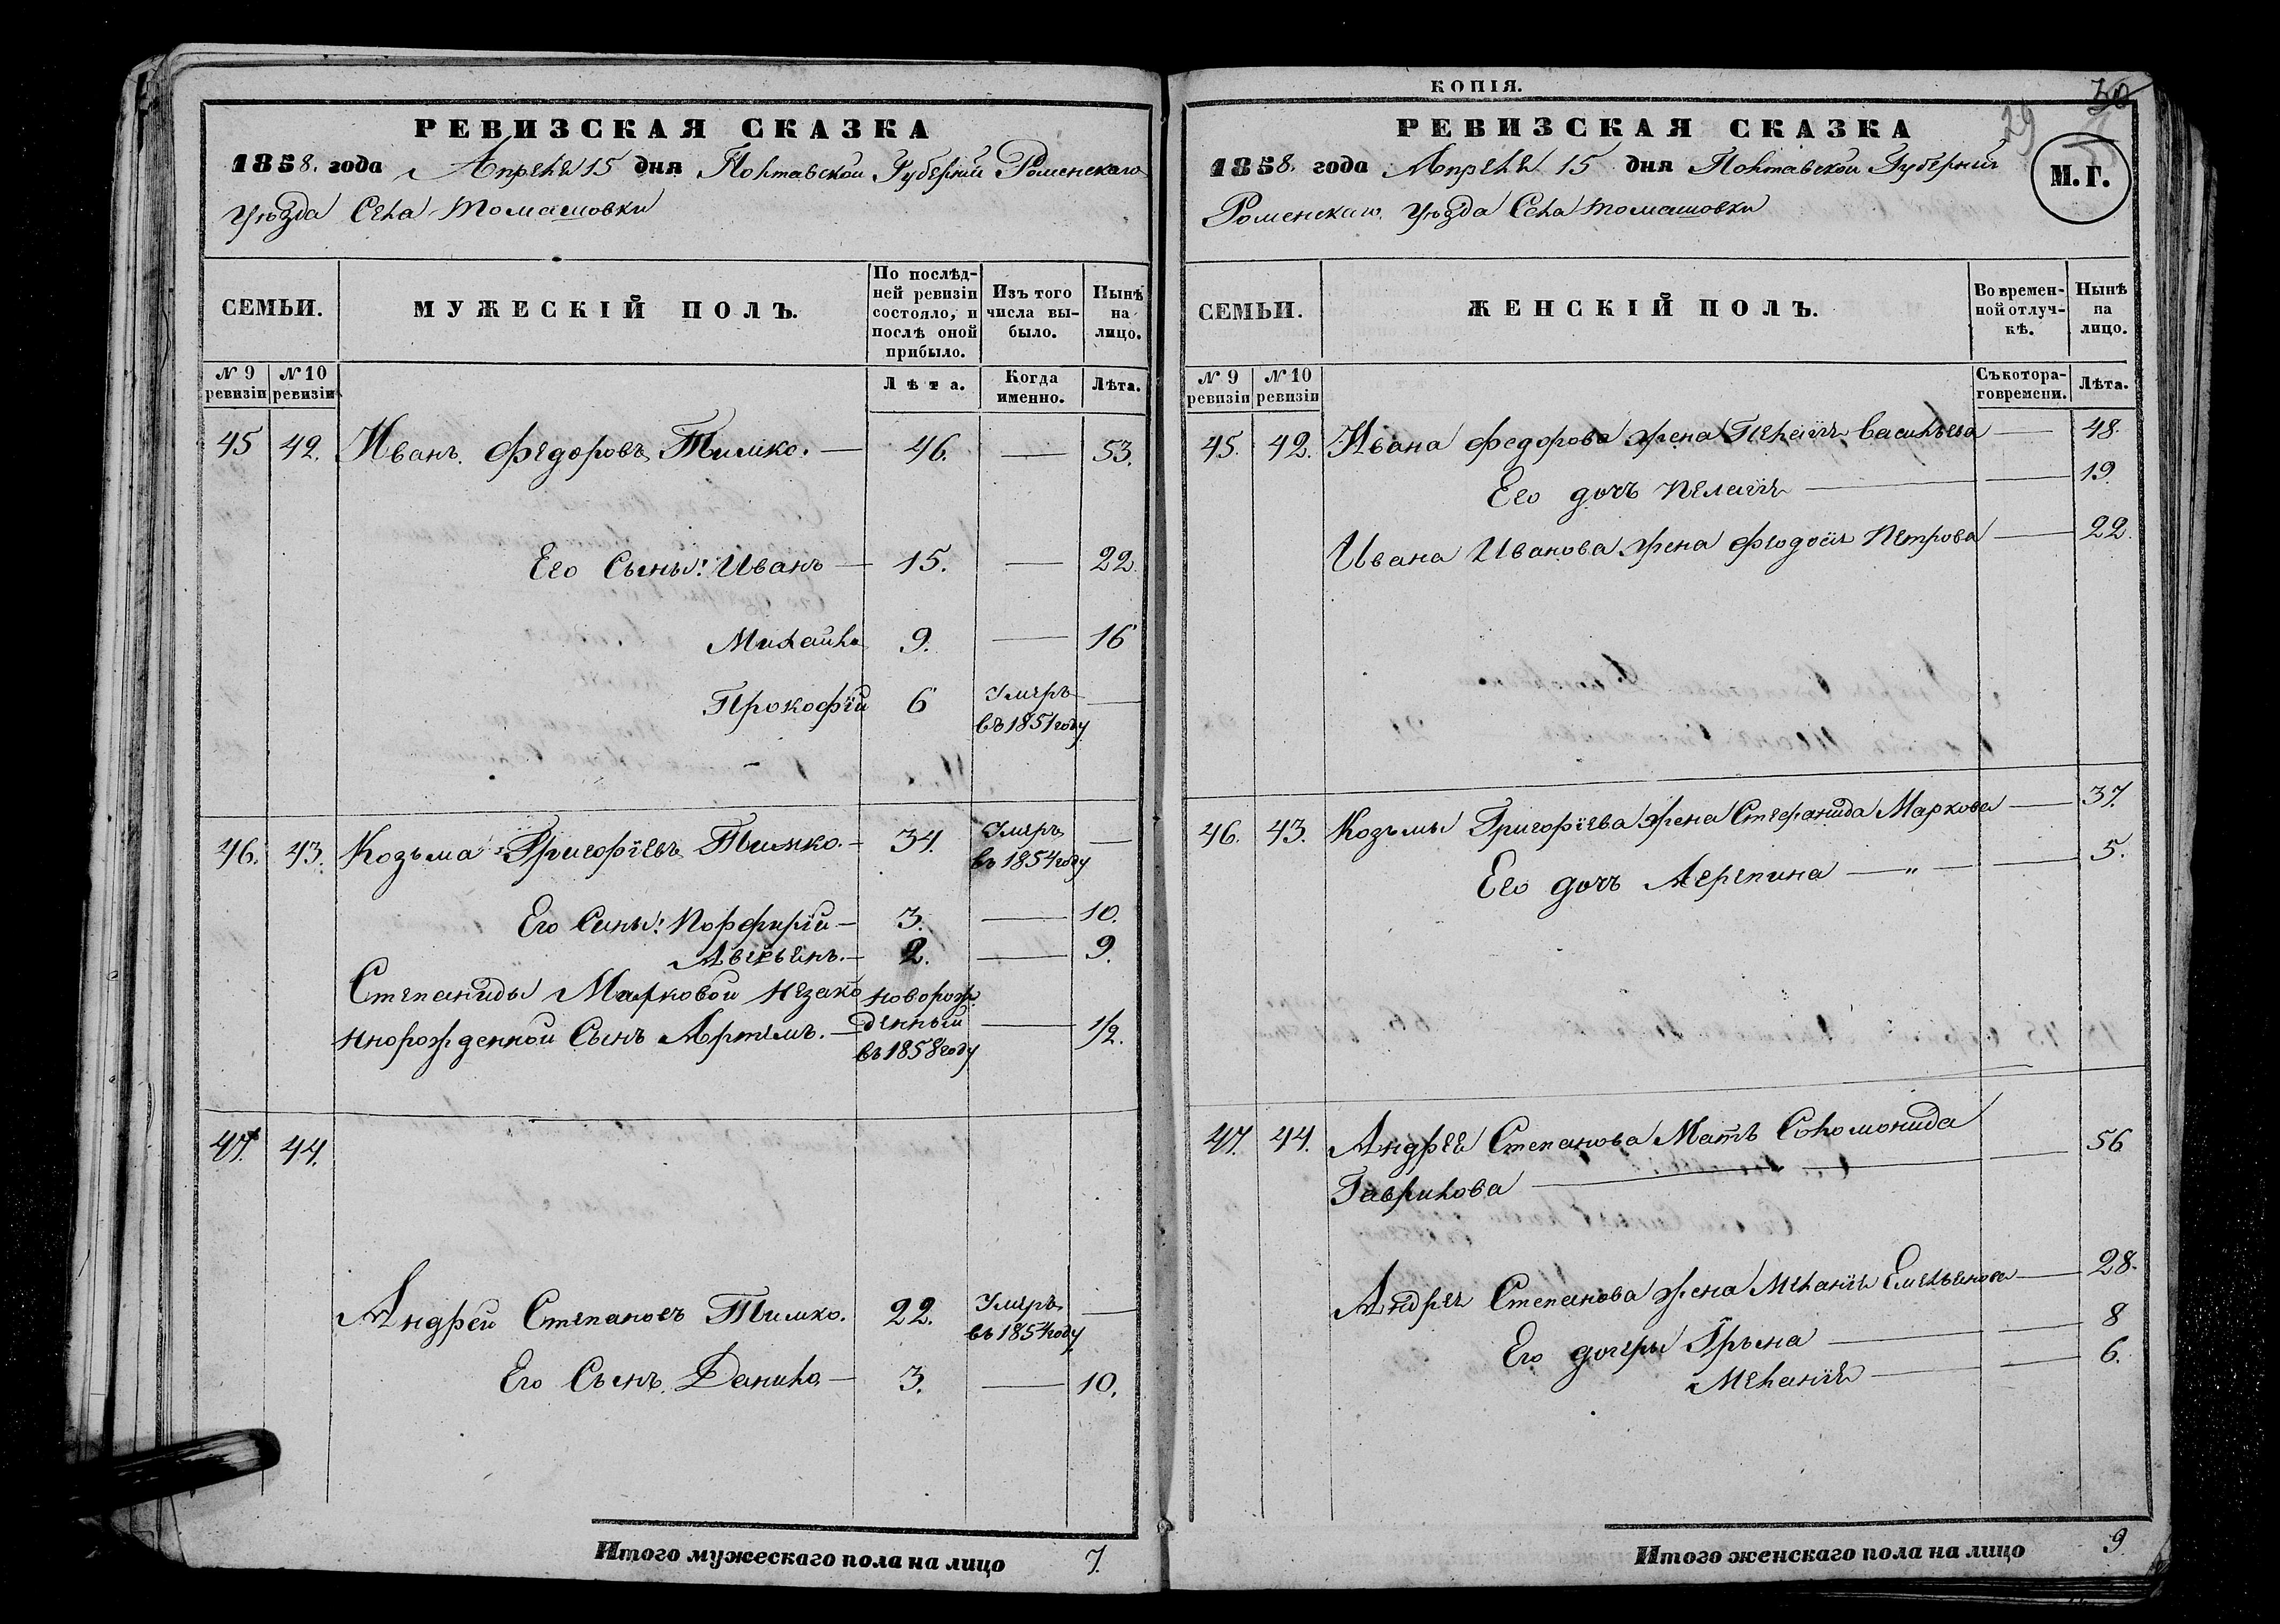 РЕВИЗСКАЯ СКАЗКА
1858. года Апреля 15 дня Полтавской Губерніи Роменскаго
Уѣзда Села Томашовки
СЕМЬИ.
МУЖЕСКІЙ ПОЛЪ.
По послѣд-
ней ревизіи
состояло, и
послѣ оной
прибыло.
Изъ того
числа вы-
было.
Нынѣ
на
лицо.
№ 9
ревизіи
№ 10
ревизіи
Лѣта.
Когда
именно.
Лѣта.
45 42. Иванъ Федоровъ Тимко. — 46. — 53.
Его Сыны: Иванъ — 15. — 22.
Михайла 9. — 16
Прокофій 6 Умеръ —
въ 1851 году
46. 43. Козьма Григорїевъ Тимко. — 34. Умеръ —
въ 1854 году
Его Сины: Порфирїй — 3. — 10.
Аверьянъ. — 2. — 9.
Степаниды Марковой незако новорож
норожденной Сынъ Артемъ. — денный — 1/2.
въ 1858 году
47. 44.
Андрей Степановъ Тимко. 22. Умеръ —
въ 1854 году
Его Сынъ Данила — 3. — 10.
Итого мужескаго пола на лицо 7.
КОПІЯ.
30
29
РЕВИЗСКАЯ СКАЗКА
1858. года Апреля 15 дня Полтавской Губерніи
М. Г.
Роменскаго Уѣзда Села Томашовки
СЕМЬИ.
ЖЕНСКІЙ ПОЛЪ.
Во времен-
ной отлуч-
кѣ.
Нынѣ
на
лицо.
№ 9
ревизіи
№ 10
ревизіи
Съ котора-
го времени.
Лѣта.
45. 42. Ивана Федорова жена Пелагія Васильева — 48.
Его дочъ Пелагія — 19.
Ивана Иванова жена Феодосія Петрова — 22.
46. 43. Козьмы Григорїева жена Стефанида Маркова — 37.
Его дочъ Агрепина — " — 5.
47. 44. Андрея Степанова Мать Соломонида 56
Гаврилова —
Андрея Степанова жена Меланія Емельянова — 28.
Его дочеры Ирына — 8
Меланія — 6.
Итого женскаго пола на лицо 9